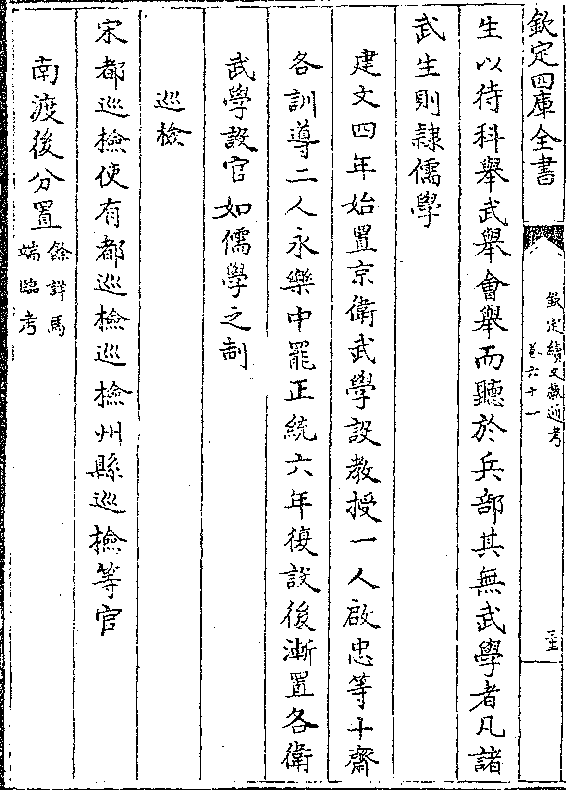 欽定四庫全書
欽定續文獻通考
卷六十一
生以待科舉武舉會舉而聽於兵部其無武學者凡諸
武生則隷儒學
建文四年始置京衛武學設教授一人啟忠等十齋
各訓導二人永樂中罷正統六年復設後漸置各衛
武學設官如儒學之制
巡檢
宋都巡檢使有都巡檢巡檢州縣巡檢等官
南渡後分置
餘詳馬
端臨考